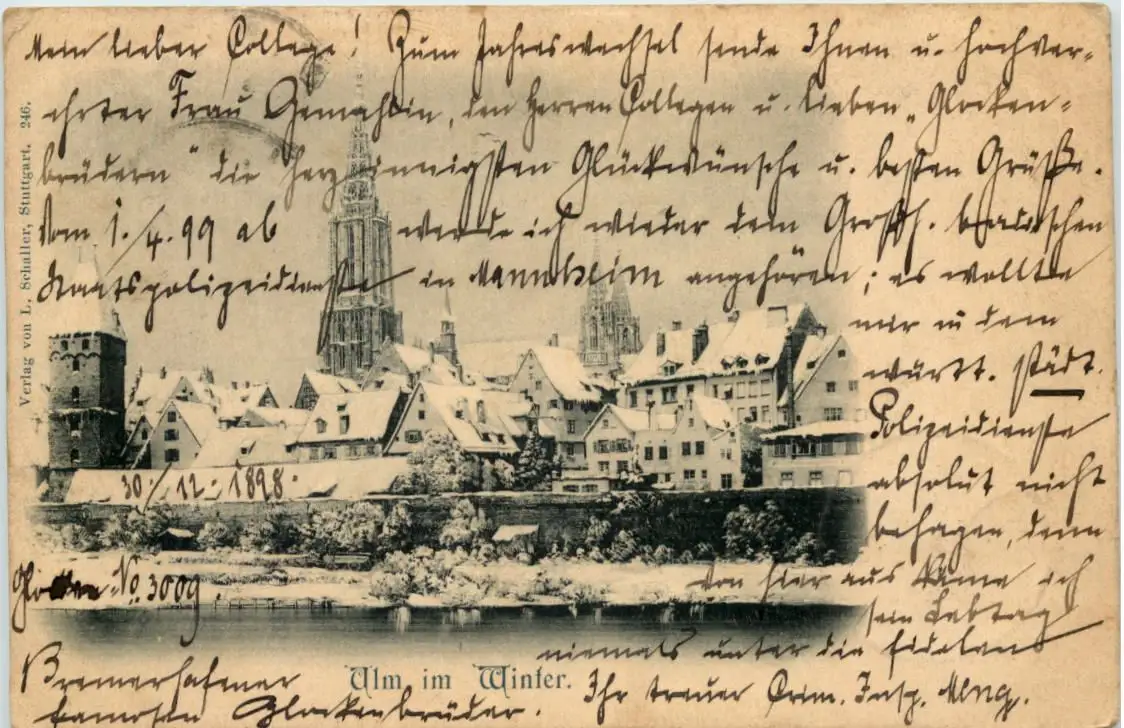 Mein lieber College! Zum Jahreswechsel sende Ihnen u. hochver-
ehrter Frau Gemahlin, den Herren Collegen u. lieben „Glocken-
brüdern" die herzinnigsten Glückwünsche u. besten Grüße.
Vom 1./4. 99 ab werde ich wieder dem Großh. badischen
Staatspolizeidienste in Mannheim angehören; es wollte
mir in dem
württ. städt.
Polizeidienste
absolut nicht
behagen, denn
von hier aus käme ich
sein Lebtag
niemals unter die fidelen
Bremerhafener
famosen Glockenbrüder.
Ihr treuer Crim. Insp.
30./12. 1898.
Glocken No. 3009.
Ulm im Winter.
Verlag von L. Schaller, Stuttgart. 246.